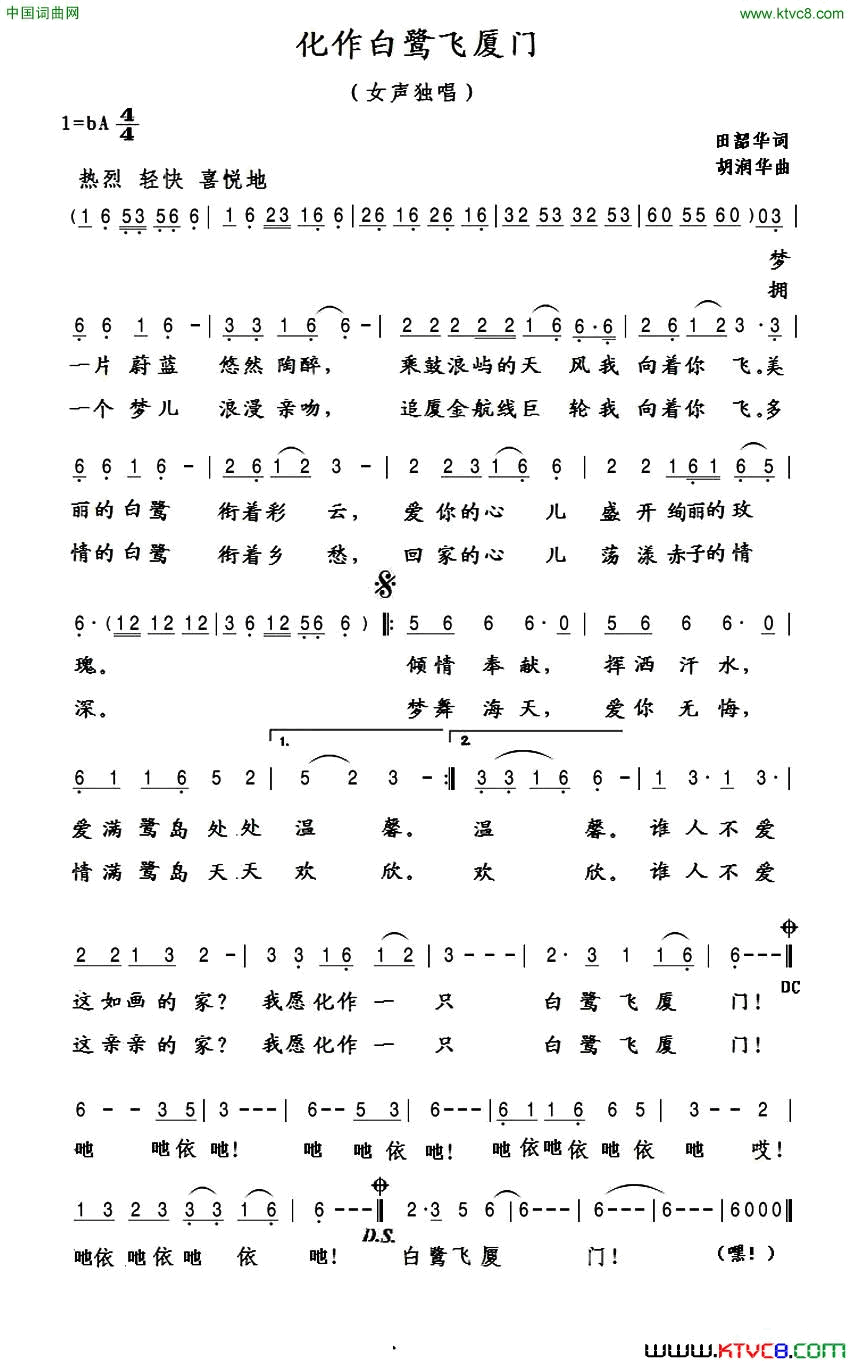 中国词曲网
www.ktvc8.com
化作白鹭飞厦门
（女声独唱）
1=bA 4/4
田韶华词
胡润华曲
热烈 轻快 喜悦地
(1 6 53 56 6 | 1 6 23 16 6 | 26 16 26 16 | 32 53 32 53 | 60 55 60 ) 03 |
梦
拥
6 6 1 6 - | 3 3 1 6 6 - | 2 2 2 2 2 1 6 6·6 | 2 6 1 2 3 · 3 |
一片蔚蓝 悠然陶醉， 乘鼓浪屿的天 风我 向着你 飞。美
一个梦儿 浪漫亲吻， 追厦金航线巨 轮我 向着你 飞。多
6 6 1 6 - | 2 6 1 2 3 - | 2 2 3 1 6 6 | 2 2 1 6 1 6 5 |
丽的白鹭 衔着彩 云， 爱你的心 儿 盛开绚丽的玫
情的白鹭 衔着乡 愁， 回家的心 儿 荡漾赤子的情
6 · (12 12 12 | 3 6 12 56 6 ) ‖: 5 6 6 6 · 0 | 5 6 6 6 · 0 |
瑰。 倾情奉献， 挥洒汗水，
深。 梦舞海天， 爱你无悔，
1. 2.
6 1 1 6 5 2 | 5 2 3 - :‖ 3 3 1 6 6 - | 1 3 · 1 3 · |
爱满鹭岛处处 温 馨。 温 馨。 谁人不爱
情满鹭岛天天 欢 欣。 欢 欣。 谁人不爱
2 2 1 3 2 - | 3 3 1 6 1 2 | 3 - - - | 2 · 3 1 1 6 | 6 - - - ‖
DC
这如画的家？ 我愿化作一 只 白鹭飞厦 门！
这亲亲的家？ 我愿化作一 只 白鹭飞厦 门！
6 - - 3 5 | 3 - - - | 6 - - 5 3 | 6 - - - | 6 1 1 6 6 5 | 3 - - 2 |
吔 吔依吔！ 吔 吔依吔！ 吔依吔依吔依吔 哎！
1 3 2 3 3 3 1 6 | 6 - - - ‖ 2 · 3 5 6 | 6 - - - | 6 - - - | 6 - - - | 6000 ‖
D.S.
吔依吔依吔 依 吔！ 白鹭飞厦 门！ （嘿！）
www.KTVC8.com